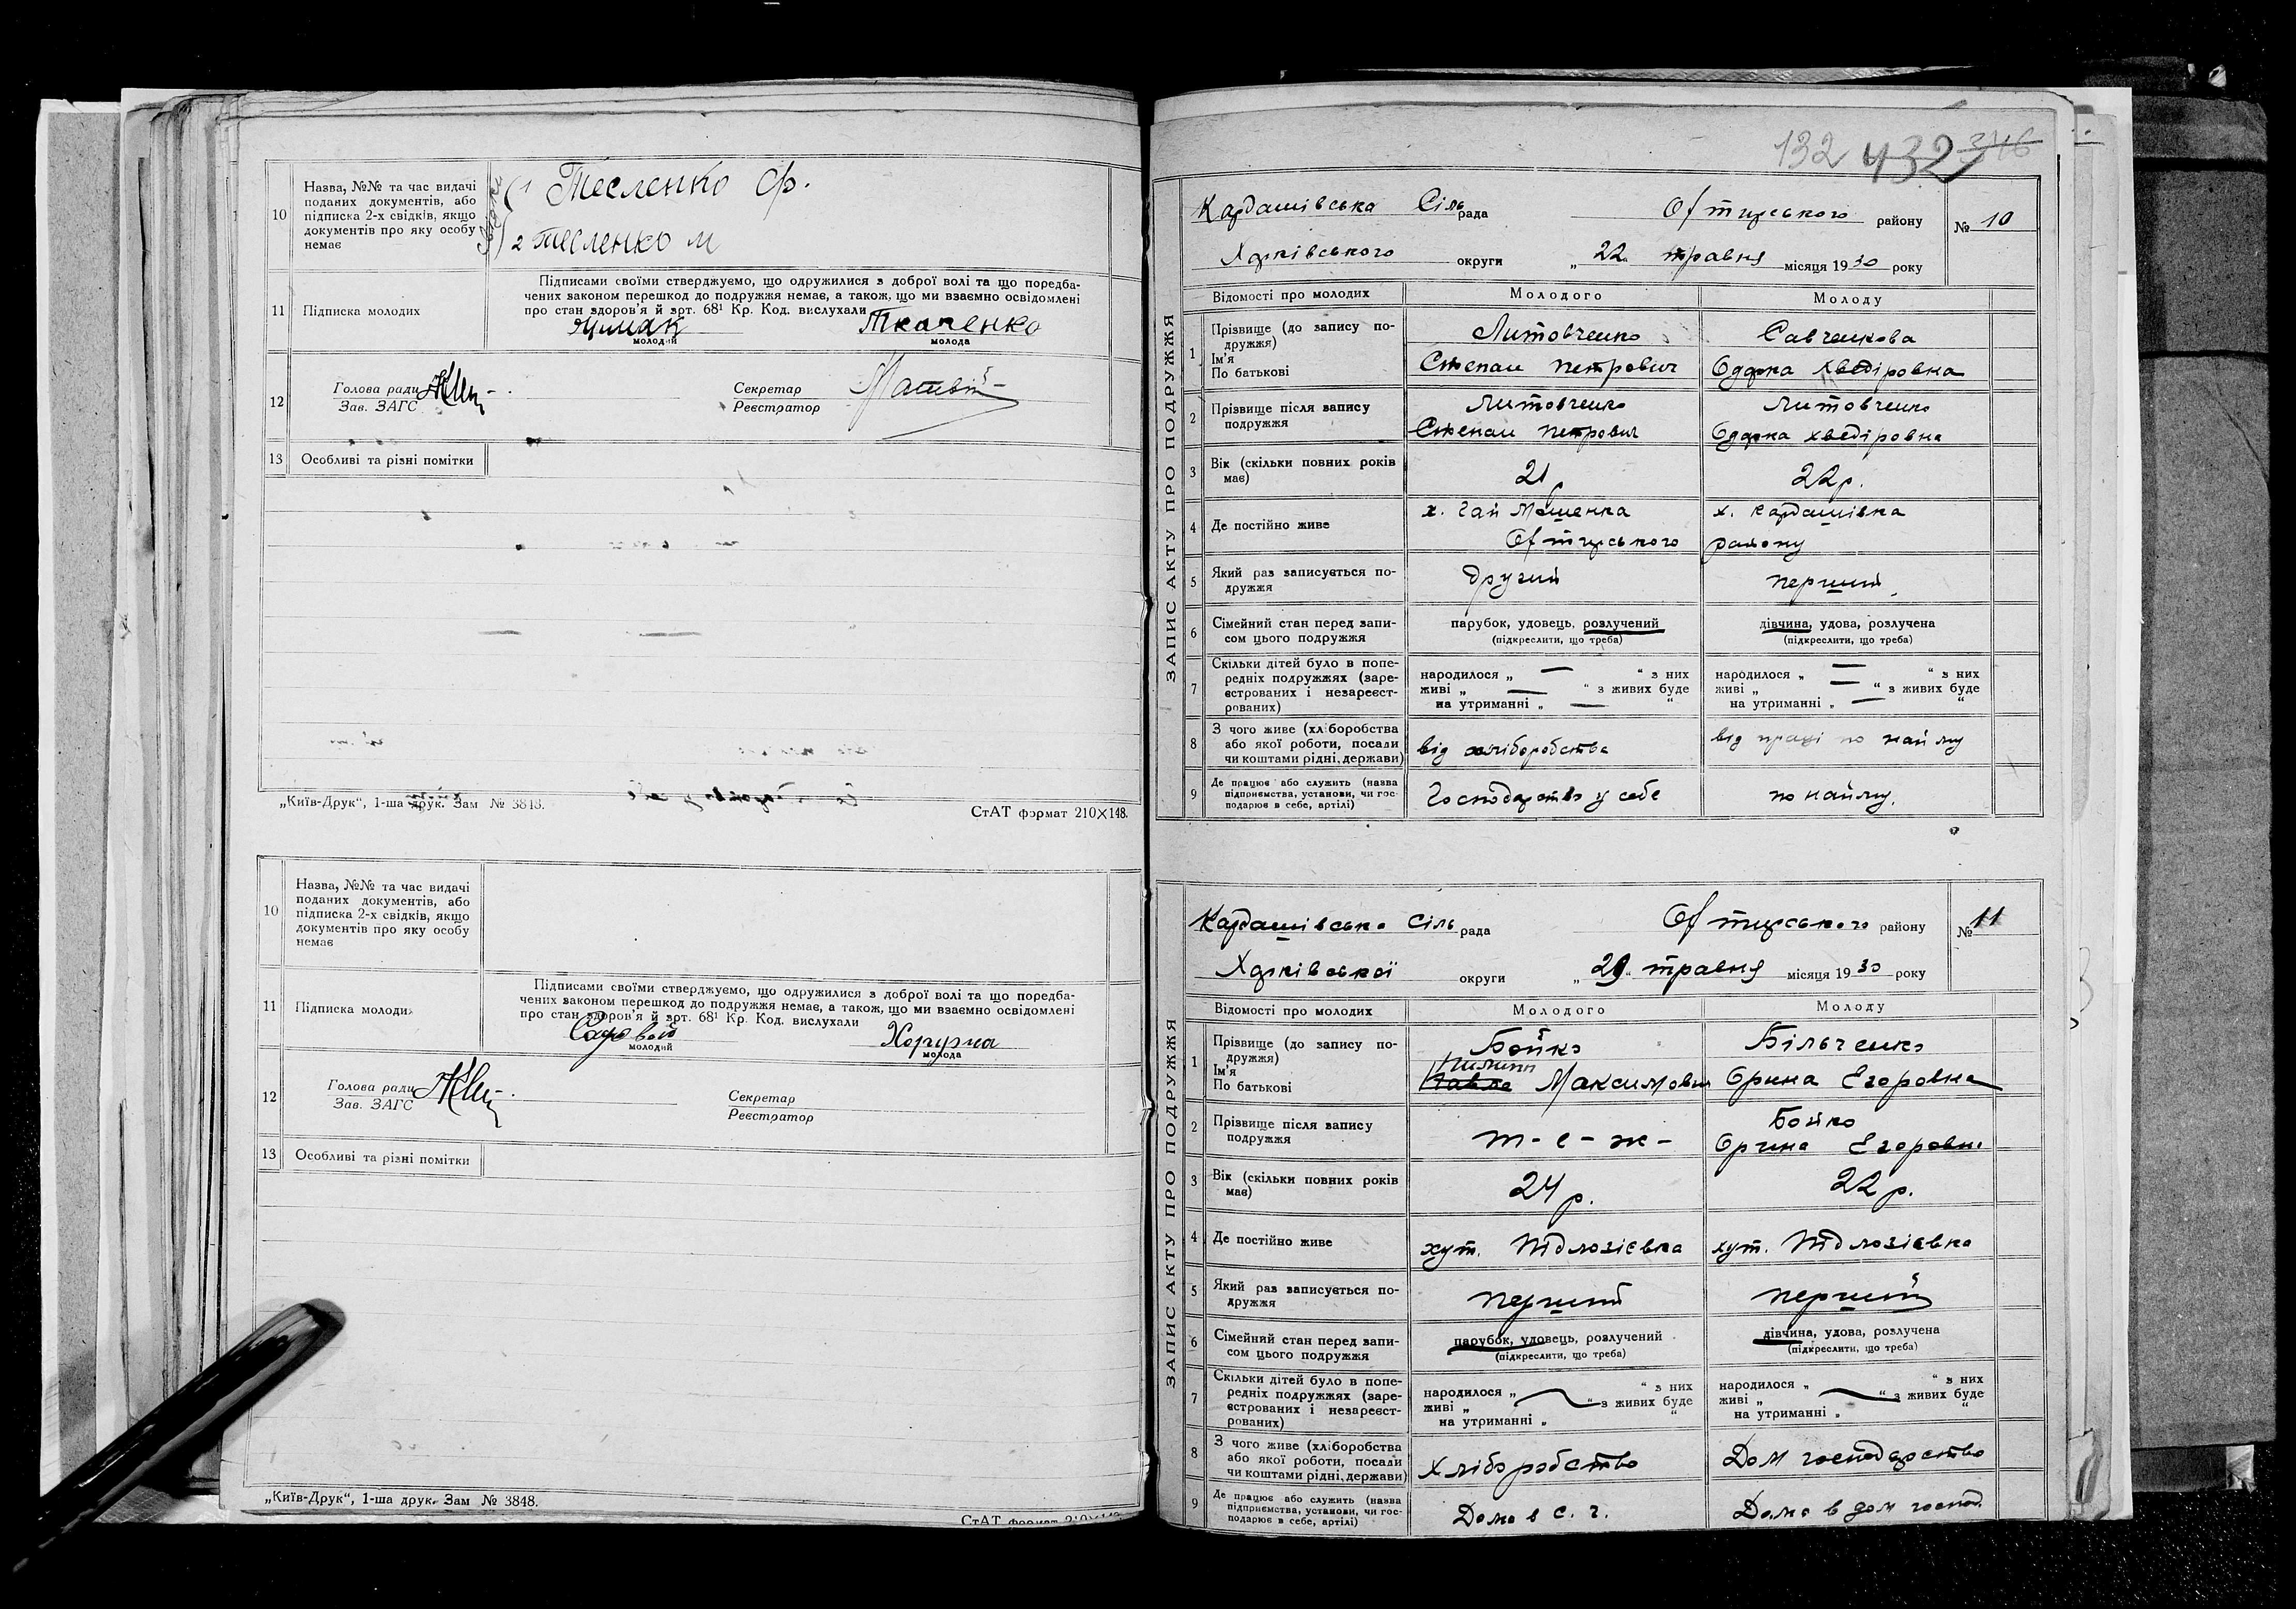 10
Назва, №№ та час видачі
поданих документів, або
підписка 2-х свідків, якщо
документів про яку особу
немає
1 Тесленко Ф.
2 Тесленко М
11
Підписка молодих
Підписами своїми стверджуємо, що одружилися з доброї волі та що поредба-
чених законом перешкод до подружжя немає, а також, що ми взаємно освідомлені
про стан здоров'я й арт. 68¹ Кр. Код. вислухали
Ткаченко
молодий
молода
12
Голова ради
Зав. ЗАГС
Секретар
Реєстратор
13
Особливі та різні помітки
„Київ-Друк“, 1-ша друк. Зам № 3848.
СтАТ формат 210×148.
10
Назва, №№ та час видачі
поданих документів, або
підписка 2-х свідків, якщо
документів про яку особу
немає
11
Підписка молодих
Підписами своїми стверджуємо, що одружилися з доброї волі та що поредба-
чених законом перешкод до подружжя немає, а також, що ми взаємно освідомлені
про стан здоров'я й арт. 68¹ Кр. Код. вислухали
молодий
молода
12
Голова ради
Зав. ЗАГС
Секретар
Реєстратор
13
Особливі та різні помітки
„Київ-Друк“, 1-ша друк. Зам № 3848.
СтАТ формат 210×148.
132 432 346
ЗАПИС АКТУ ПРО ПОДРУЖЖЯ
Кардашівська Сіль рада Охтирського району № 10
Харківського округи „22“ травня місяця 1930 року
Відомості про молодих Молодого Молоду
1 Прізвище (до запису по-
дружжя)
Ім'я
По батькові
Литовченко Савченкова
Степан Петрович Одарка Хведіровна
2 Прізвище після запису
подружжя
Литовченко Литовченко
Степан Петрович Одарка Хведіровна
3 Вік (скільки повних років
має)
21 22 р.
4 Де постійно живе
х. Гай Мошенка х. Кардашівка
Охтирського району
5 Який раз записується по-
дружжя
другий перший
6 Сімейний стан перед запи-
сом цього подружжя
парубок, удовець, розлучений дівчина, удова, розлучена
(підкреслити, що треба) (підкреслити, що треба)
7 Скільки дітей було в попе-
редніх подружжях (заре-
єстрованих і незареєст-
рованих)
народилося „ — “ з них народилося „ — “ з них
живі „ — “ з живих буде живі „ — “ з живих буде
на утриманні „ — “ на утриманні „ — “
8 З чого живе (хліборобства
або якої роботи, посади
чи коштами рідні, держави)
від хліборобства від праці по найму
9 Де працює або служить (назва
підприємства, установи, чи гос-
подарює в себе, артілі)
Господарство у себе по найму.
ЗАПИС АКТУ ПРО ПОДРУЖЖЯ
Кардашівська Сіль рада Охтирського району № 11
Харківської округи „29“ травня місяця 1930 року
Відомості про молодих Молодого Молоду
1 Прізвище (до запису по-
дружжя)
Ім'я
По батькові
Бойко Більченко
Пилип
Павло Максимович Орина Егоровна
2 Прізвище після запису
подружжя
т - е - ж - Бойко
Орина Егоровна
3 Вік (скільки повних років
має)
24 р. 22 р.
4 Де постійно живе
хут. Підлозієвка хут. Підлозієвка
5 Який раз записується по-
дружжя
перший перший
6 Сімейний стан перед запи-
сом цього подружжя
парубок, удовець, розлучений дівчина, удова, розлучена
(підкреслити, що треба) (підкреслити, що треба)
7 Скільки дітей було в попе-
редніх подружжях (заре-
єстрованих і незареєст-
рованих)
народилося „ “ з них народилося „ “ з них
живі „ “ з живих буде живі „ “ з живих буде
на утриманні „ “ на утриманні „ “
8 З чого живе (хліборобства
або якої роботи, посади
чи коштами рідні, держави)
Хліборобство Дом господарство
9 Де працює або служить (назва
підприємства, установи, чи гос-
подарює в себе, артілі)
Дома в с. г. Дома в дом господ.